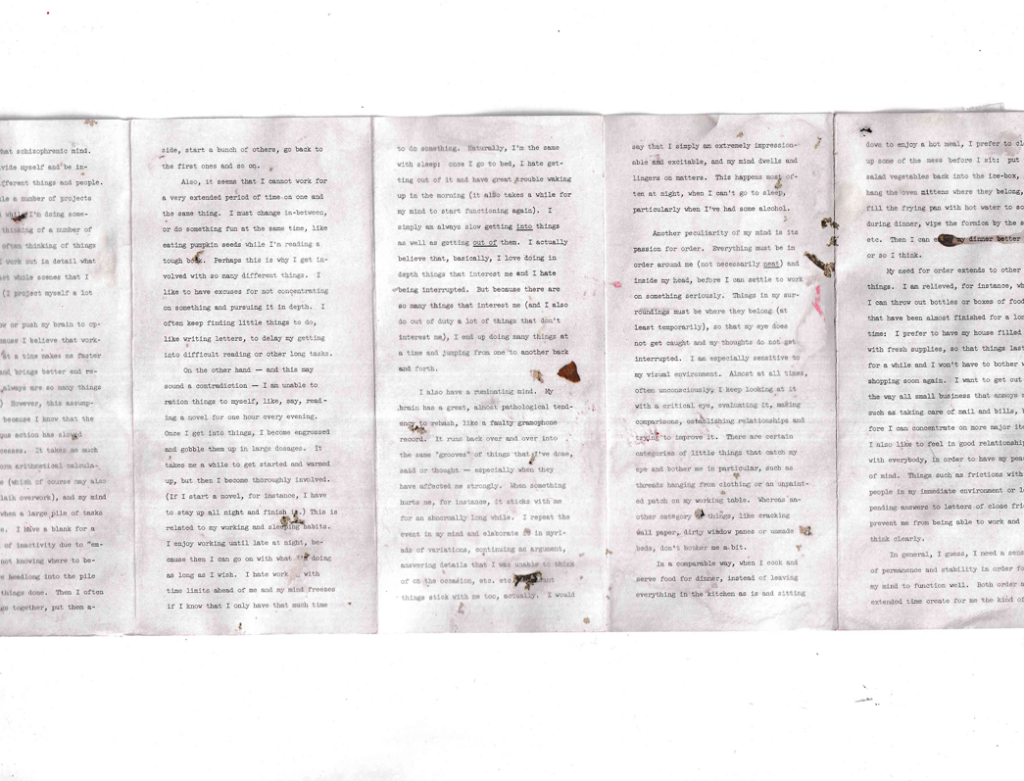 hat schizophrenic mind.
vide myself and be in-
fferent things and people.
le a number of projects
d while I'm doing some-
thinking of a number of
often thinking of things
I work out in detail what
whole scenes that I
(I project myself a lot
ow or push my brain to op-
because I believe that work-
at a time makes me faster
and brings better and re-
always are so many things
However, this assump-
because I know that the
action has
esses. It takes me much
arithmetical calcula-
e (which of course may also
lain overwork), and my mind
when a large pile of tasks
e. I have a blank for a
of inactivity due to "en-
not knowing where to be-
e headlong into the pile
things done. Then I often
gs together, put them a-
side, start a bunch of others, go back to
the first ones and so on.
Also, it seems that I cannot work for
a very extended period of time on one and
the same thing. I must change in-between,
or do something fun at the same time, like
eating pumpkin seeds while I'm reading a
tough book. Perhaps this is why I get in-
volved with so many different things. I
like to have excuses for not concentrating
on something and pursuing it in depth. I
often keep finding little things to do,
like writing letters, to delay my getting
into difficult reading or other long tasks.
On the other hand — and this may
sound a contradiction — I am unable to
ration things to myself, like, say, read-
ing a novel for one hour every evening.
Once I get into things, I become engrossed
and gobble them up in large dosages. It
takes me a while to get started and warmed
up, but then I become thoroughly involved.
(If I start a novel, for instance, I have
to stay up all night and finish it.) This is
related to my working and sleeping habits.
I enjoy working until late at night, be-
cause then I can go on with what I'm doing
as long as I wish. I hate work with
time limits ahead of me and my mind freezes
if I know that I only have that much time
to do something. Naturally, I'm the same
with sleep: once I go to bed, I hate get-
ting out of it and have great trouble waking
up in the morning (it also takes a while for
my mind to start functioning again). I
simply am always slow getting into things
as well as getting out of them. I actually
believe that, basically, I love doing in
depth things that interest me and I hate
being interrupted. But because there are
so many things that interest me (and I also
do out of duty a lot of things that don't
interest me), I end up doing many things at
a time and jumping from one to another back
and forth.
I also have a ruminating mind. My
brain has a great, almost pathological tend-
ency to rehash, like a faulty gramophone
record. It runs back over and over into
the same "grooves" of things that I've done,
said or thought — especially when they
have affected me strongly. When something
hurts me, for instance, it sticks with me
for an abnormally long while. I repeat the
event in my mind and elaborate it in myri-
ads of variations, continuing an argument,
answering details that I was unable to think
of on the occasion, etc. etc.
things stick with me too, actually. I would
say that I simply am extremely impression-
able and excitable, and my mind dwells and
lingers on matters. This happens most of-
ten at night, when I can't go to sleep,
particularly when I've had some alcohol.
Another peculiarity of my mind is its
passion for order. Everything must be in
order around me (not necessarily neat) and
inside my head, before I can settle to work
on something seriously. Things in my sur-
roundings must be where they belong (at
least temporarily), so that my eye does
not get caught and my thoughts do not get
interrupted. I am especially sensitive to
my visual environment. Almost at all times,
often unconsciously, I keep looking at it
with a critical eye, evaluating it, making
comparisons, establishing relationships and
trying to improve it. There are certain
categories of little things that catch my
eye and bother me in particular, such as
threads hanging from clothing or an unpaint-
ed patch on my working table. Whereas an-
other category of things, like cracking
wall paper, dirty window panes or unmade
beds, don't bother me a bit.
In a comparable way, when I cook and
serve food for dinner, instead of leaving
everything in the kitchen as is and sitting
down to enjoy a hot meal, I prefer to cl
up some of the mess before I sit: put
salad vegetables back into the ice-box,
hang the oven mittens where they belong,
fill the frying pan with hot water to so
during dinner, wipe the formica by the s
etc. Then I can my dinner better
or so I think.
My need for order extends to other
things. I am relieved, for instance, wh
I can throw out bottles or boxes of food
that have been almost finished for a lon
time: I prefer to have my house filled
with fresh supplies, so that things last
for a while and I won't have to bother w
shopping soon again. I want to get out
the way all small business that annoys m
such as taking care of mail and bills,
fore I can concentrate on more major ite
I also like to feel in good relationship
with everybody, in order to have my peac
of mind. Things such as frictions with
people in my immediate environment or l
pending answers to letters of close frie
prevent me from being able to work and
think clearly.
In general, I guess, I need a sens
of permanence and stability in order fo
my mind to function well. Both order a
extended time create for me the kind of